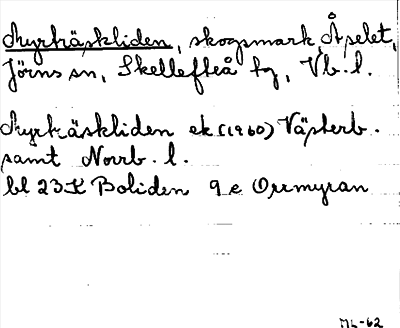 Myrträskliden, skogsmark, Åselet,
Jörns sn, Skellefteå tg, Vb. l.
Myrträskliden ek (1960) Västerb.
samt Norrb. l.
bl 23 K Boliden 9 e Orrmyran
ML-62